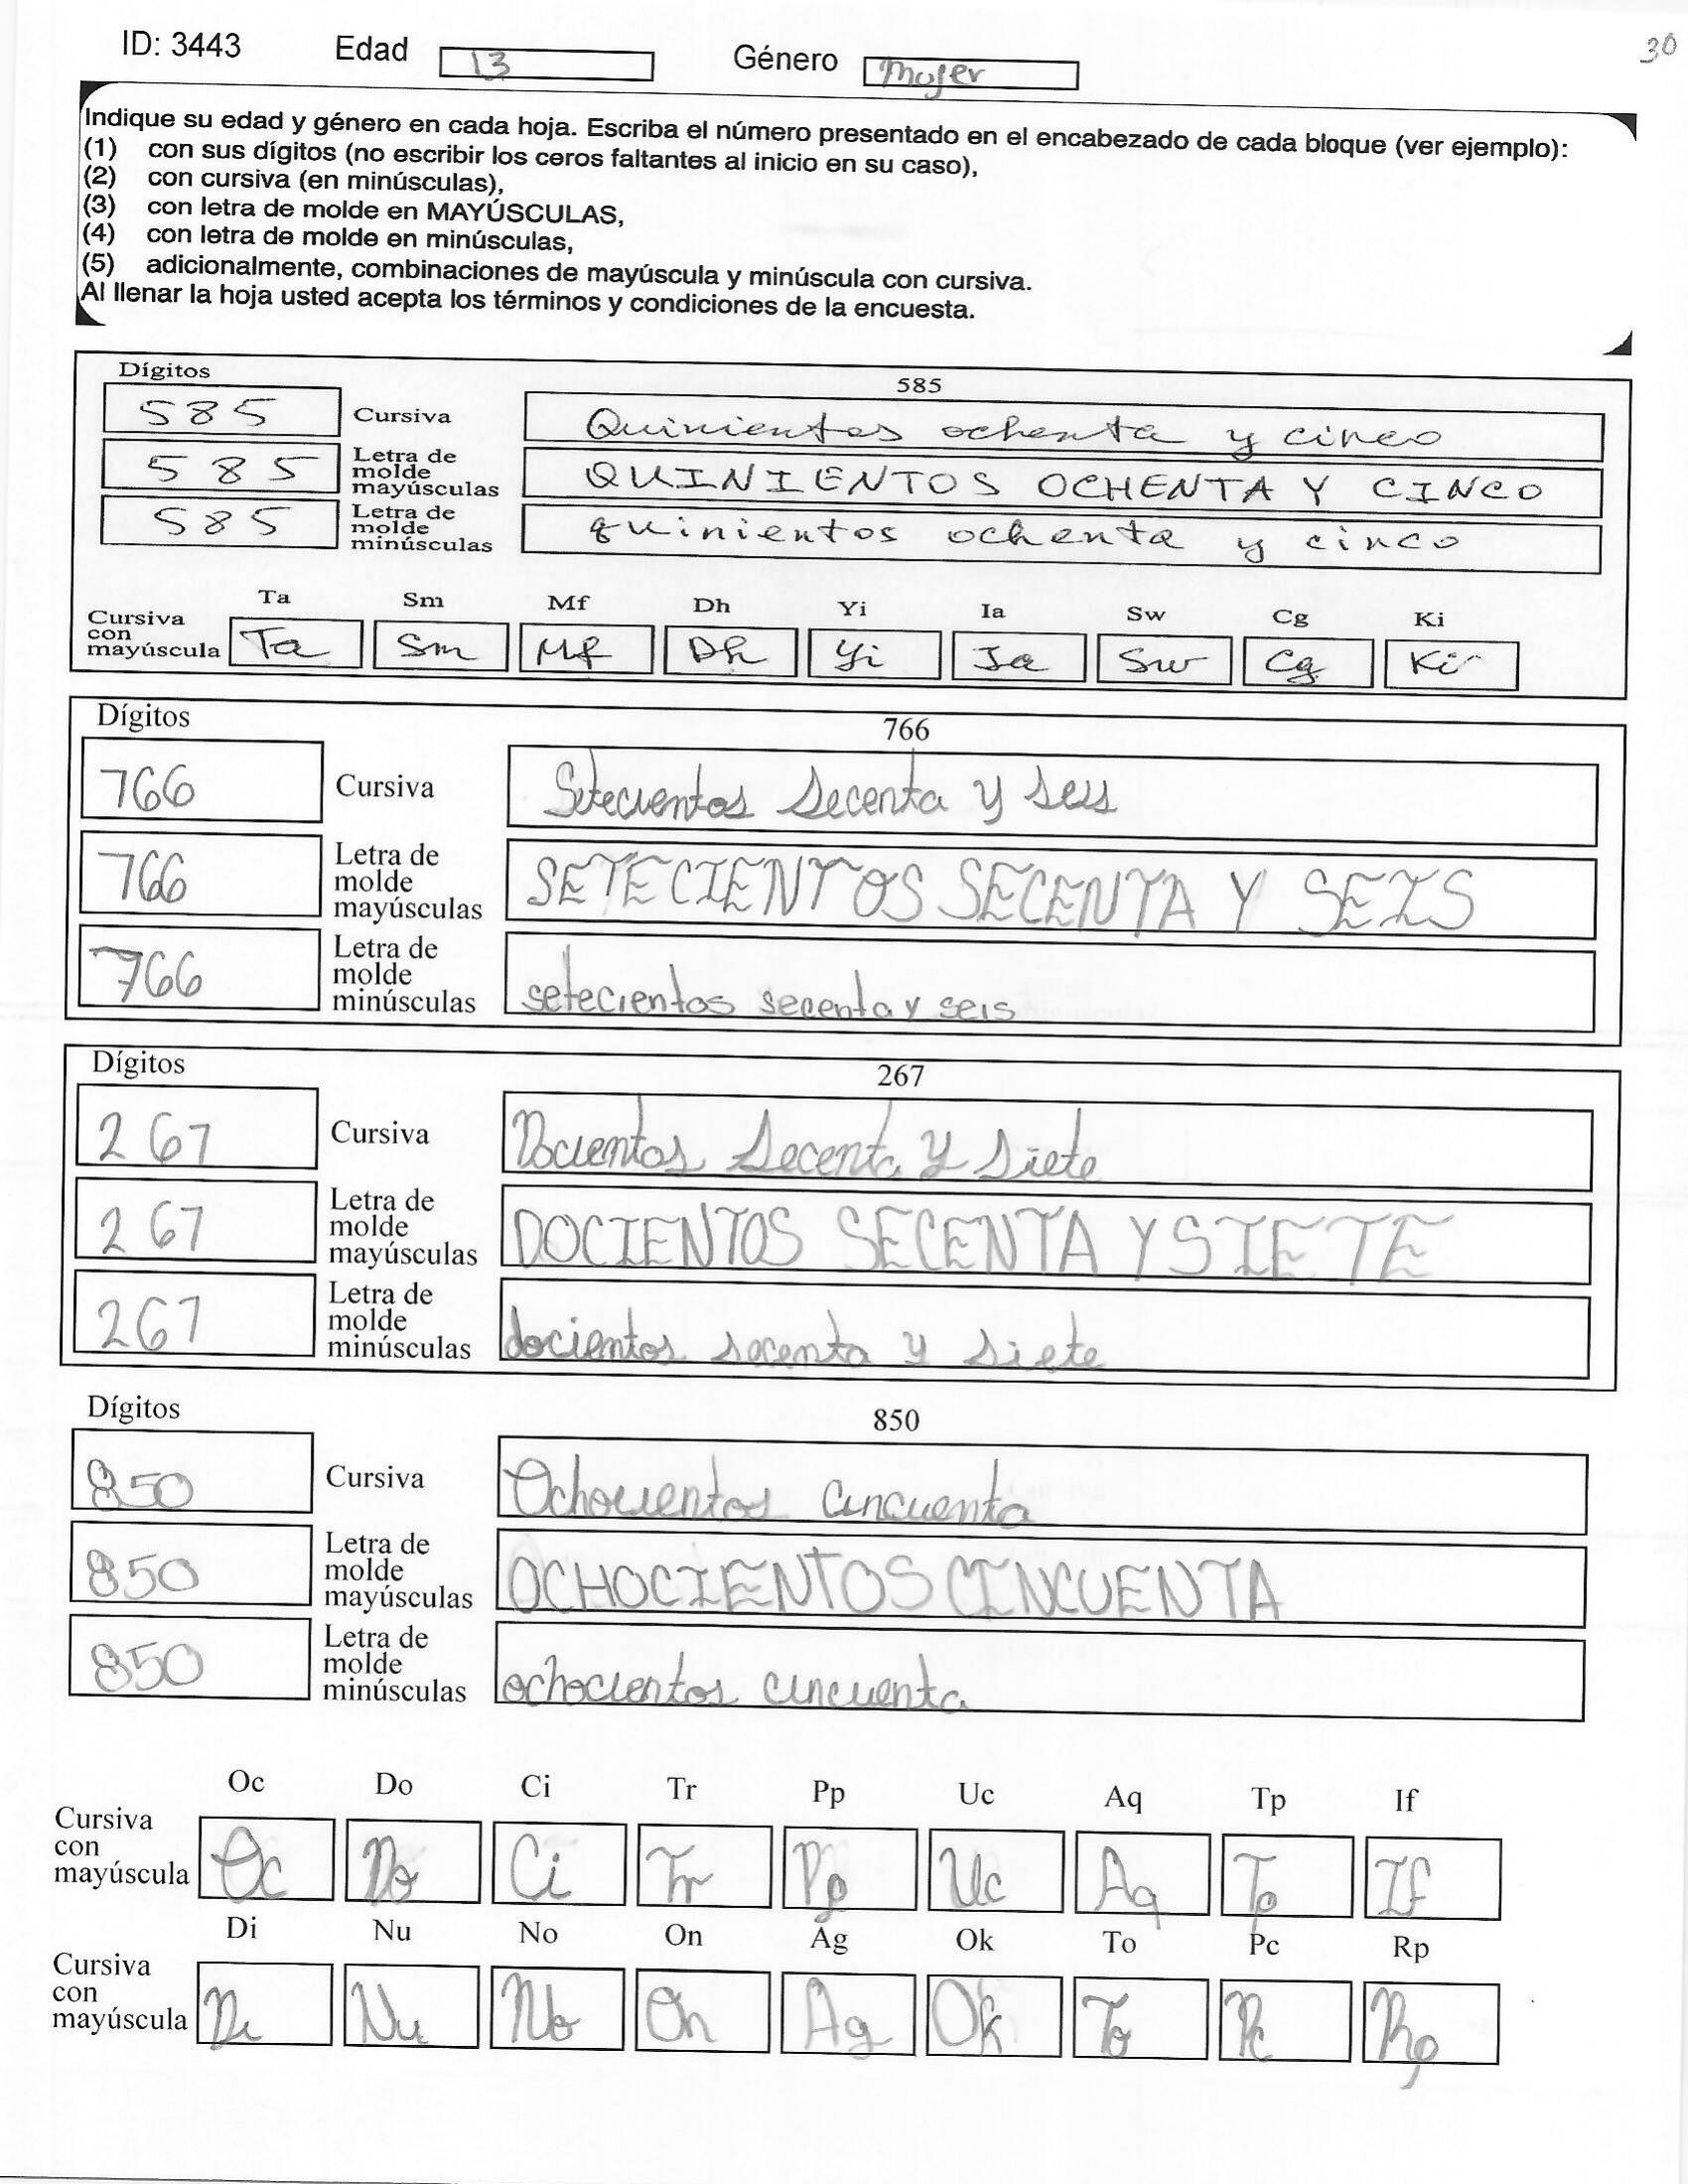 ID: 3443 Edad 13 Género mujer 30
Indique su edad y género en cada hoja. Escriba el número presentado en el encabezado de cada bloque (ver ejemplo):
(1) con sus dígitos (no escribir los ceros faltantes al inicio en su caso),
(2) con cursiva (en minúsculas),
(3) con letra de molde en MAYÚSCULAS,
(4) con letra de molde en minúsculas,
(5) adicionalmente, combinaciones de mayúscula y minúscula con cursiva.
Al llenar la hoja usted acepta los términos y condiciones de la encuesta.
Dígitos 585
585 Cursiva Quinientos ochenta y cinco
585 Letra de molde mayúsculas QUINIENTOS OCHENTA Y CINCO
585 Letra de molde minúsculas quinientos ochenta y cinco
Ta Sm Mf Dh Yi Ia Sw Cg Ki
Cursiva con mayúscula Ta Sm Mf Dh Yi Ia Sw Cg Ki
Dígitos 766
766 Cursiva Setecientos secenta y seis
766 Letra de molde mayúsculas SETECIENTOS SECENTA Y SEIS
766 Letra de molde minúsculas setecientos secenta y seis
Dígitos 267
267 Cursiva Docientos secenta y siete
267 Letra de molde mayúsculas DOCIENTOS SECENTA Y SIETE
267 Letra de molde minúsculas docientos secenta y siete
Dígitos 850
850 Cursiva Ochocientos cincuenta
850 Letra de molde mayúsculas OCHOCIENTOS CINCUENTA
850 Letra de molde minúsculas ochocientos cincuenta
Oc Do Ci Tr Pp Uc Aq Tp If
Cursiva con mayúscula Oc Do Ci Tr Pp Uc Aq Tp If
Di Nu No On Ag Ok To Pc Rp
Cursiva con mayúscula Di Nu No On Ag Ok To Pc Rp